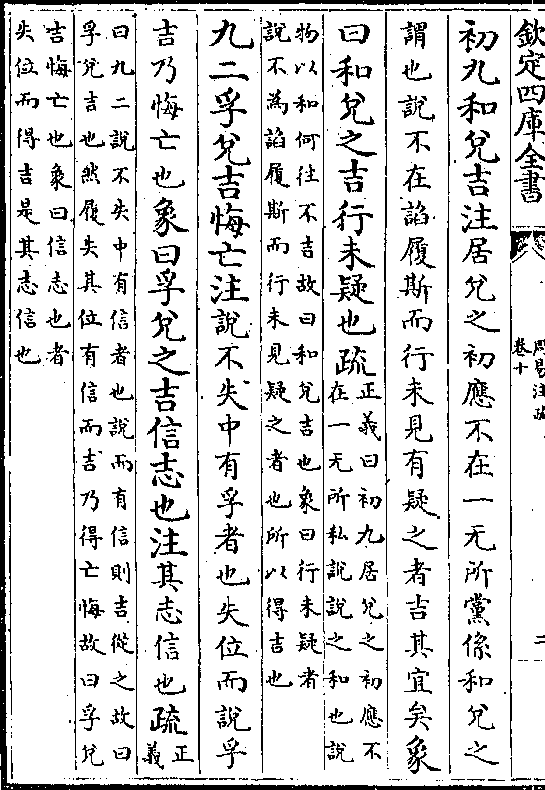 欽定四庫全書
周易注疏
卷十
二
初九和兌吉注居兌之初應不在一无所黨係和兌之
謂也說不在諂履斯而行未見有疑之者吉其宜矣象
曰和兌之吉行未疑也疏
正義曰初九居兌之初應不
在一无所私說說之和也說
物以和何往不吉故曰和兌吉也象曰行未疑者
說不為諂履斯而行未見疑之者也所以得吉也
九二孚兌吉悔亡注說不失中有孚者也失位而說孚
吉乃悔亡也象曰孚兌之吉信志也注其志信也疏
正
義
曰九二說不失中有信者也說而有信則吉從之故曰
孚兌吉也然履失其位有信而吉乃得亡悔故曰孚兌
吉悔亡也象曰信志也者
失位而得吉是其志信也